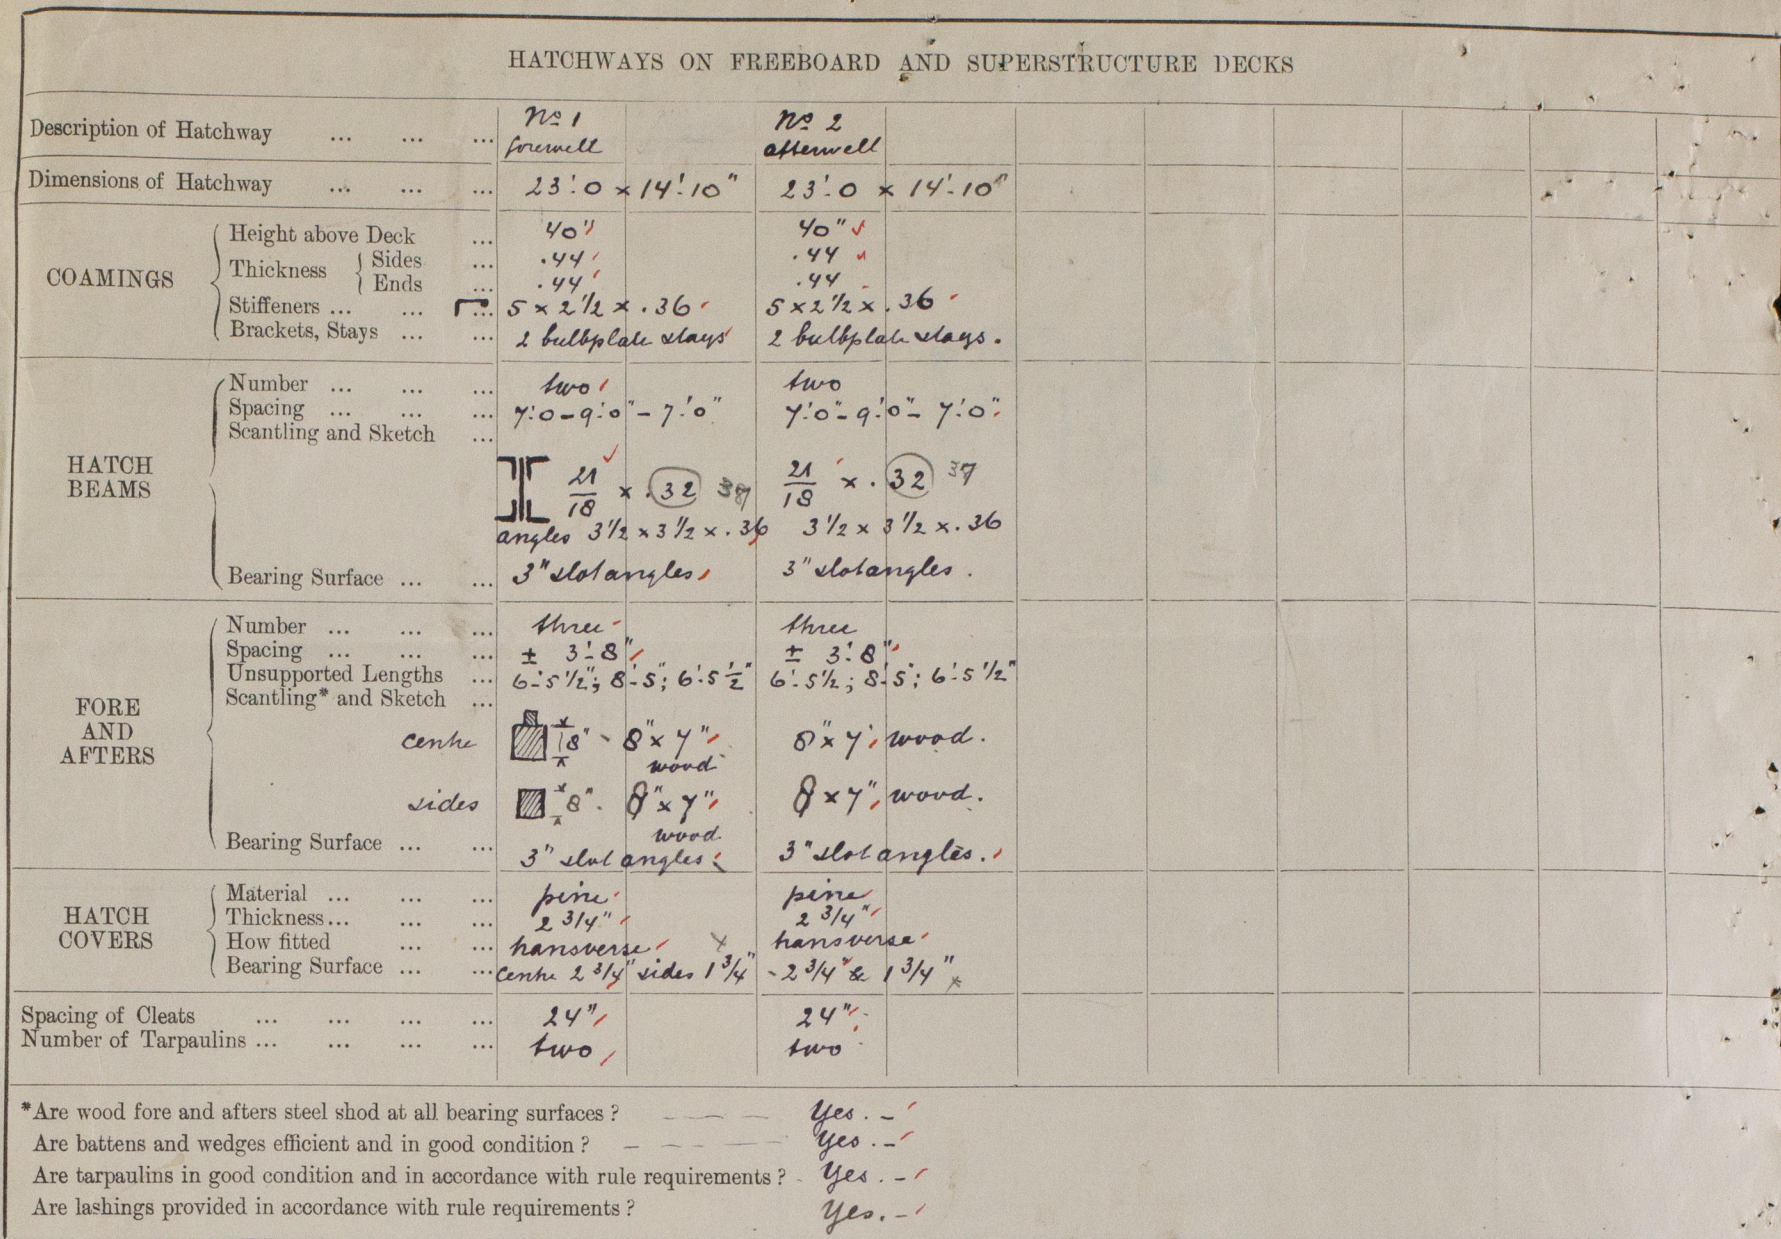 HATCHWAYS ON FREEBOARD AND SUPERSTRUCTURE DECKS
Description of Hatchway ... ... ... No 1 No 2
forewell afterwell
Dimensions of Hatchway ... ... ... 23'-0 x 14'-10" 23'-0 x 14'-10"
COAMINGS
Height above Deck ... 40" 40"
Thickness { Sides ... .44 .44
Ends ... .44 .44
Stiffeners ... ... ... 5 x 2 1/2 x .36 5 x 2 1/2 x .36
Brackets, Stays ... ... 2 bulbplate stays 2 bulbplate stays.
HATCH BEAMS
Number ... ... ... two two
Spacing ... ... ... 7'-0 - 9'-0" - 7'-0" 7'-0" - 9'-0" - 7'-0"
Scantling and Sketch ...
21/18 x .32 37 21/18 x .32 37
angles 3 1/2 x 3 1/2 x .36 3 1/2 x 3 1/2 x .36
Bearing Surface ... ... 3" slot angles 3" slot angles.
FORE AND AFTERS
Number ... ... ... three three
Spacing ... ... ... ± 3'-8" ± 3'-8"
Unsupported Lengths ... 6'-5 1/2"; 8'-5"; 6'-5 1/2" 6'-5 1/2; 8'-5"; 6'-5 1/2"
Scantling* and Sketch ...
centre 8" - 8" x 7" wood 8" x 7" wood.
sides 8" - 8" x 7" wood 8 x 7" wood.
Bearing Surface ... ... 3" slot angles 3" slot angles.
HATCH COVERS
Material ... ... ... pine pine
Thickness ... ... ... 2 3/4" 2 3/4"
How fitted ... ... transverse x transverse
Bearing Surface ... ... centre 2 3/4" sides 1 3/4" - 2 3/4" & 1 3/4" x
Spacing of Cleats ... ... ... ... 24" 24"
Number of Tarpaulins ... ... ... ... two two
*Are wood fore and afters steel shod at all bearing surfaces? Yes. -
Are battens and wedges efficient and in good condition? Yes. -
Are tarpaulins in good condition and in accordance with rule requirements? Yes. -
Are lashings provided in accordance with rule requirements? Yes. -